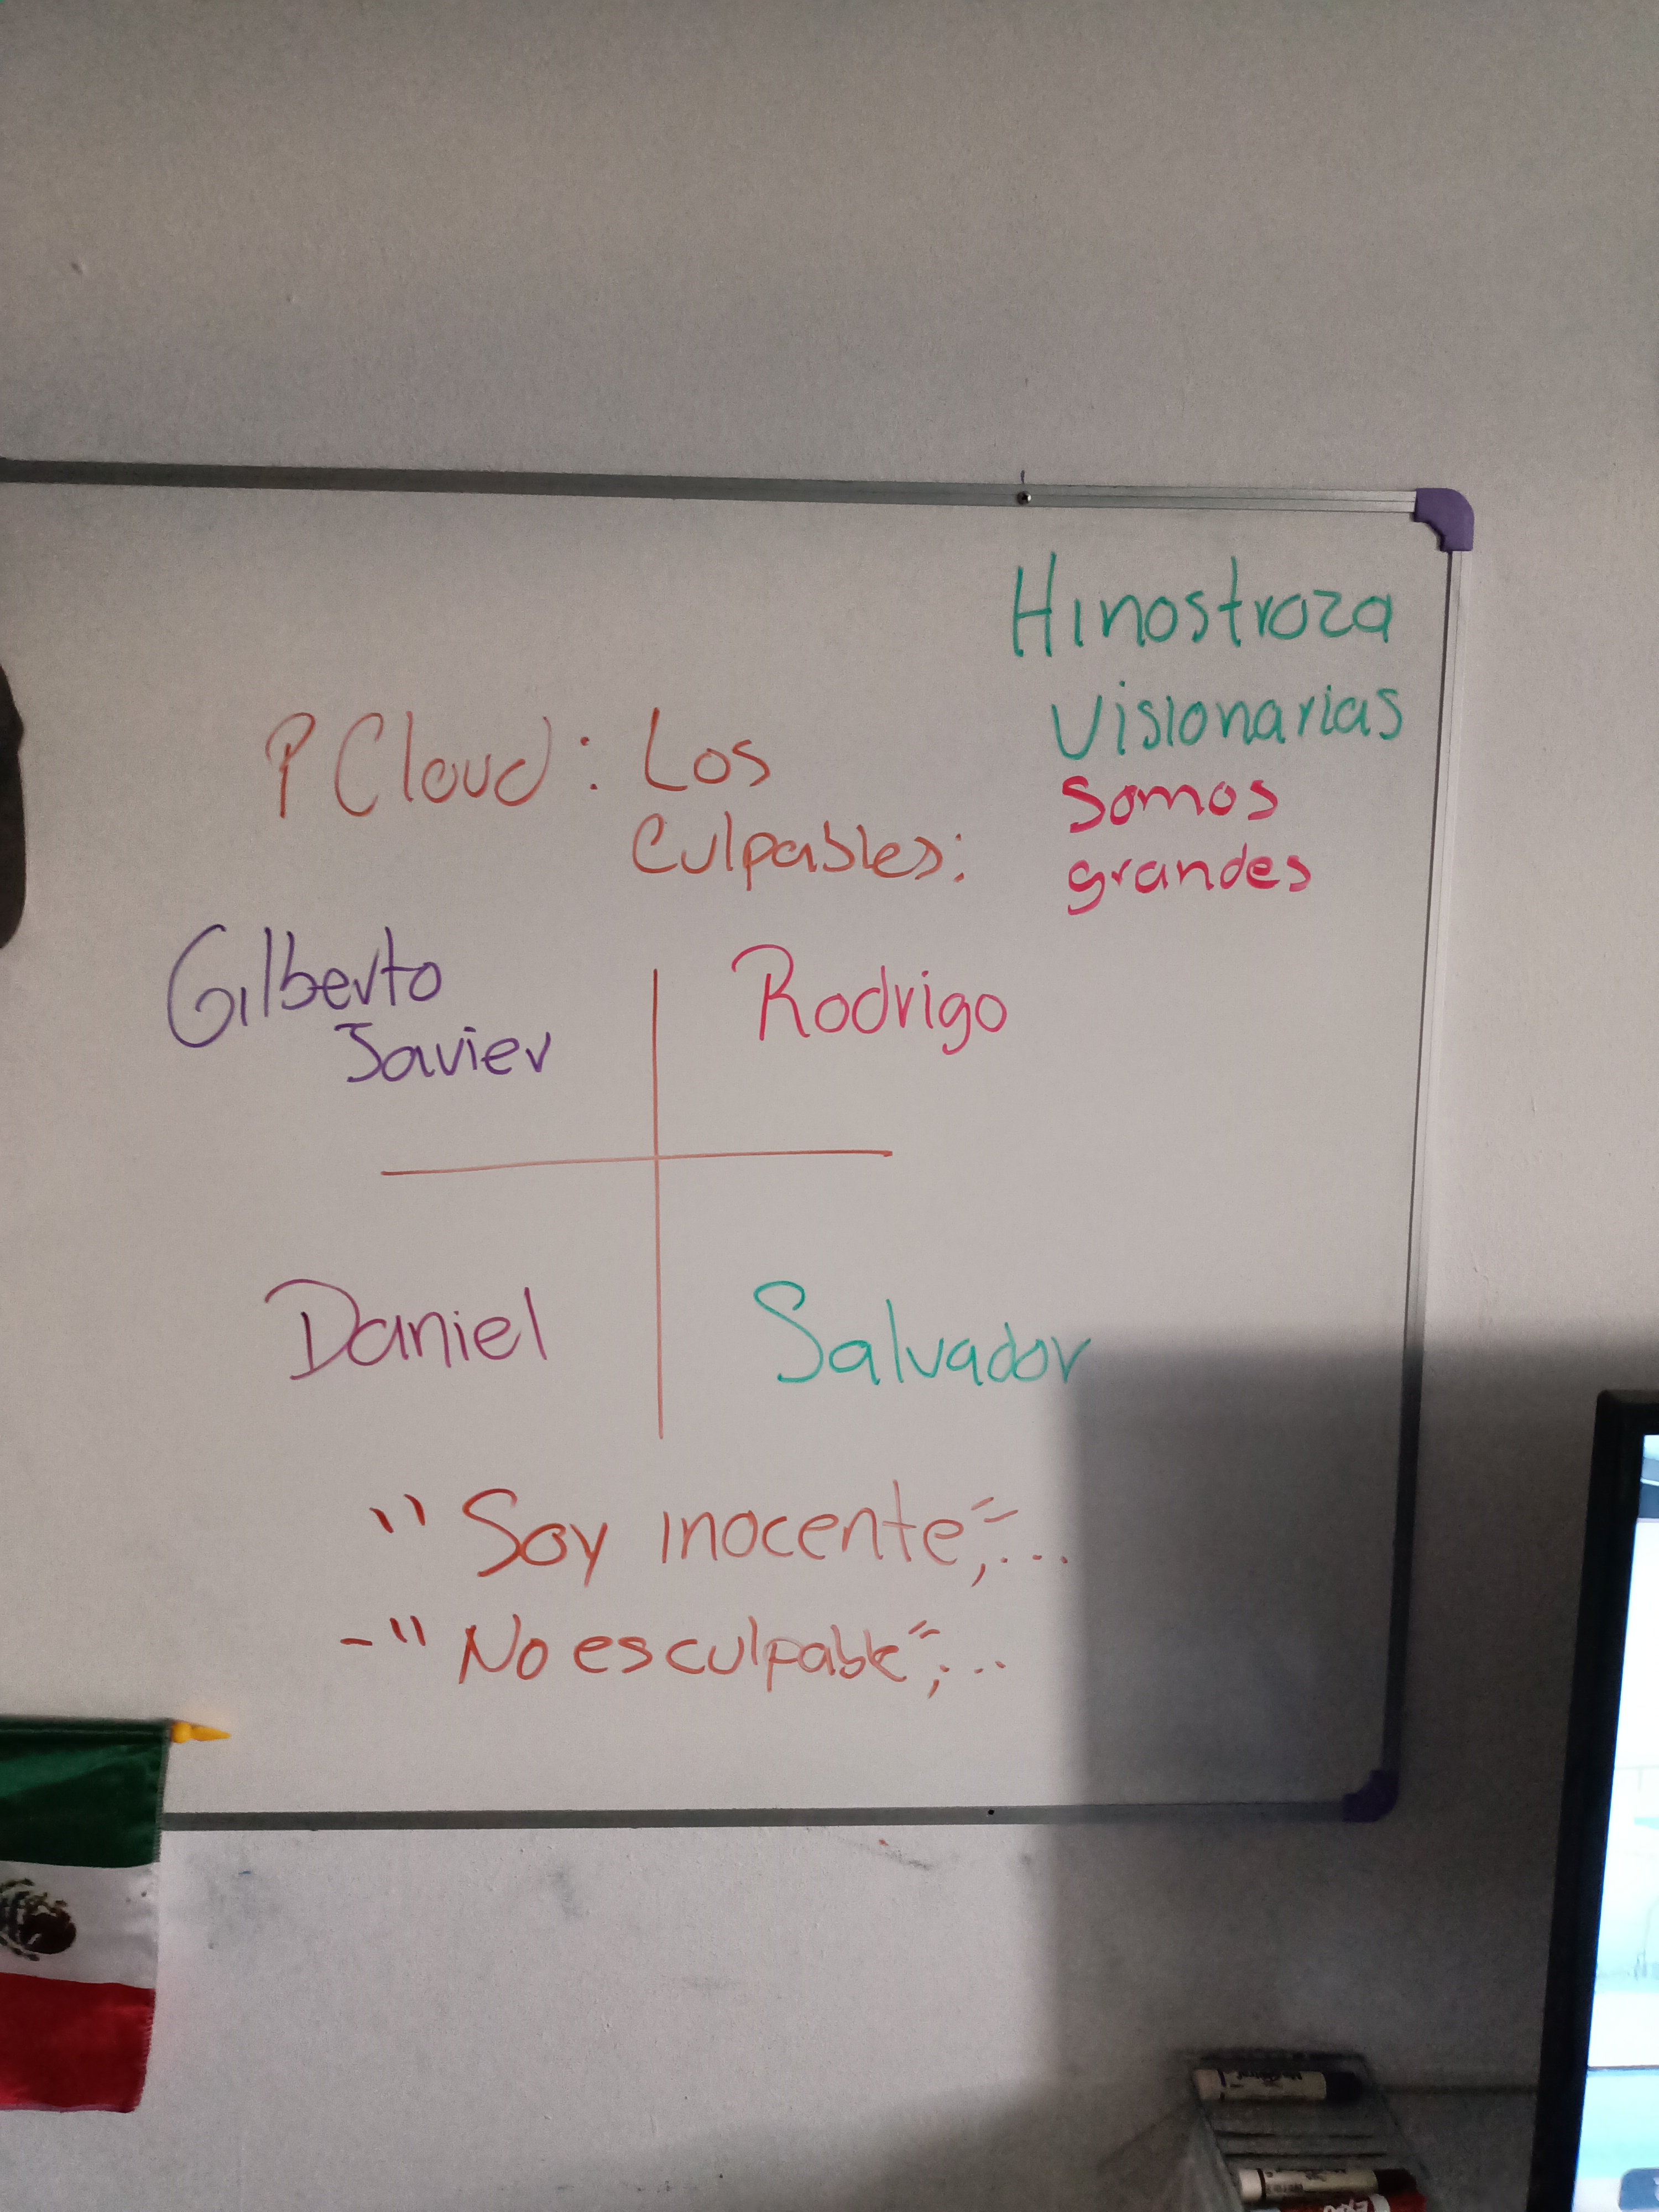 Hinostroza
Visionarias
somos
grandes
PCloud: Los
Culpables:
Gilberto
Javier
Rodrigo
Daniel
Salvador
"Soy inocente",...
-"No es culpable",...